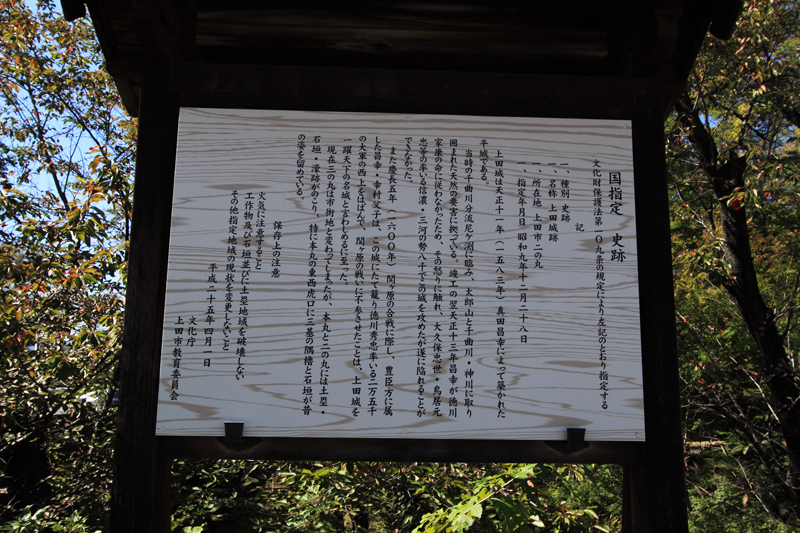 国指定　史跡
文化財保護法第一〇九条の規定により左記のとおり指定する
記
一、種別 史跡
一、名称 上田城跡
一、所在地 上田市二の丸
一、指定年月日 昭和九年十二月二十八日
上田城は天正十一年（一五八三年）真田昌幸によって築かれた
平城である。
当時の千曲川分流尼ヶ淵に臨み、太郎山と千曲川・神川に取り
囲まれた天然の要害に拠っている。竣工の翌天正十三年昌幸が徳川
家康の命に従わなかったため、その怒りに触れ、大久保忠世・鳥居元
忠等の率いる信濃、三河の勢八千でこの城を攻めたが遂に陥れることが
できなかった。
また慶長五年（一六〇〇年）関ヶ原の合戦に際し、豊臣方に属
した昌幸・幸村父子は、この城にたて籠り徳川秀忠率いる三万五千
の大軍の西上をはばんで、関ヶ原の戦いに不参させたことは、上田城を
一躍天下の名城と言わしめるに至った。
現在三の丸は市街地と変わってしまったが、本丸と二の丸には土塁・
石垣・濠跡がのこり、特に本丸の東西虎口に三基の隅櫓と石垣が昔
の姿を留めている。
保存上の注意
火気に注意すること
工作物及び石垣並びに土塁地域を破壊しない
その他指定地域の現状を変更しないこと
平成二十五年四月一日
文化庁
上田市教育委員会